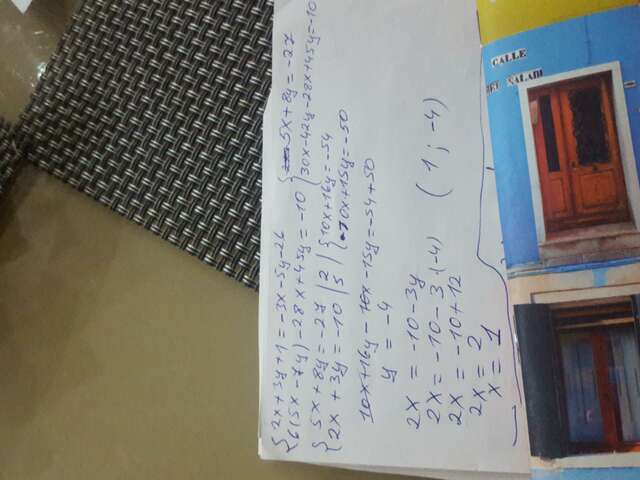 {2x+3y+1=-3x-5y-26
{6(5x-7y)-28x+45y=-10
{5x+8y=-27
{30x-42y-28x+45y=-10
{5x+8y=-27 |2|
{2x+3y=-10 |5|
{10x+16y=-54
{10x+15y=-50
10x+16y-10x-15y=-54+50
y=-4
2x=-10-3y
2x=-10-3·(-4)
2x=-10+12
2x=2
x=1
(1;-4)
CALLE